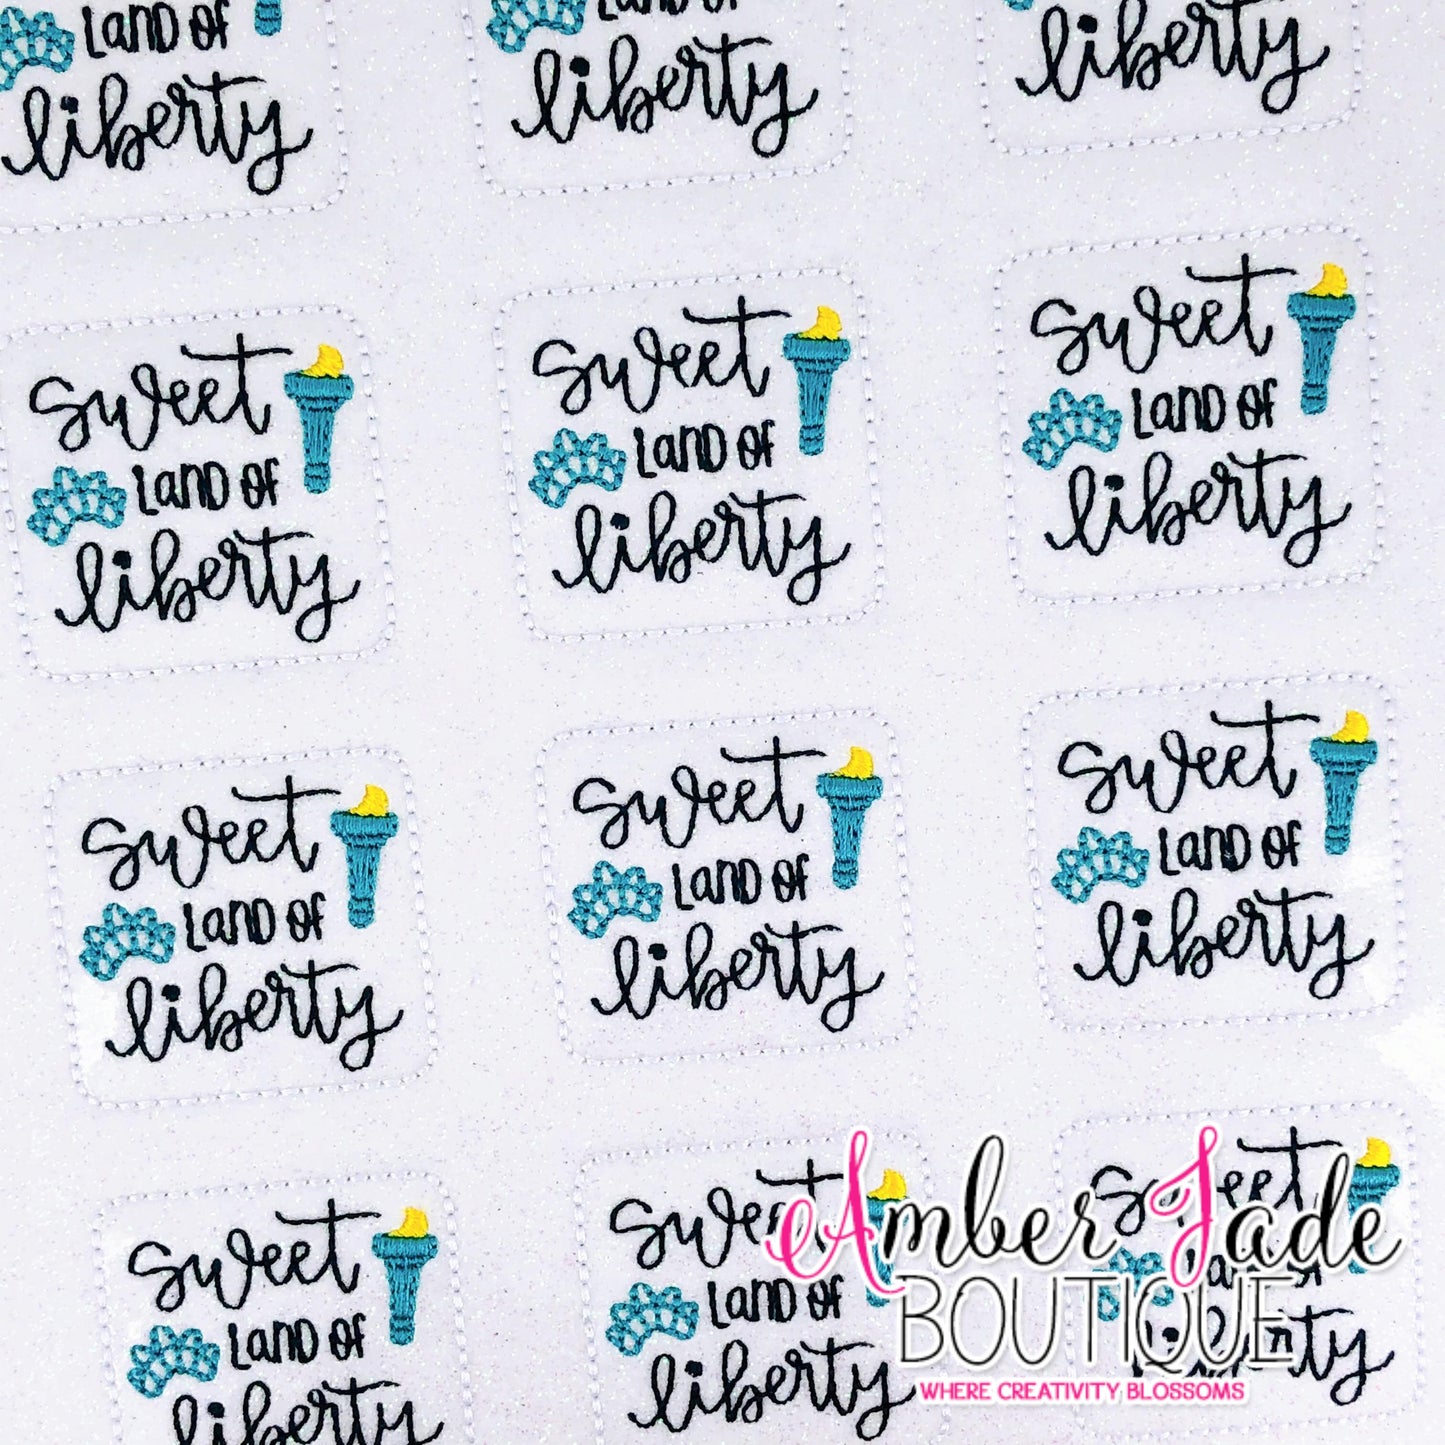 Land of
liberty
Land of
liberty
liberty
Sweet
Land of
liberty
Sweet
Land of
liberty
Sweet
Land of
liberty
Sweet
Land of
liberty
Sweet
Land of
liberty
Sweet
Land of
liberty
Sweet
Land of
liberty
Sweet
Land of
liberty
Sweet
Land of
liberty
Amber Jade
BOUTIQUE
WHERE CREATIVITY BLOSSOMS